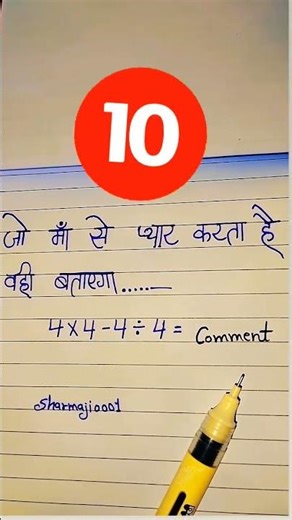 10
जो माँ से प्यार करता है
वही बताएगा......
4×4-4÷4= Comment
sharmaji0001